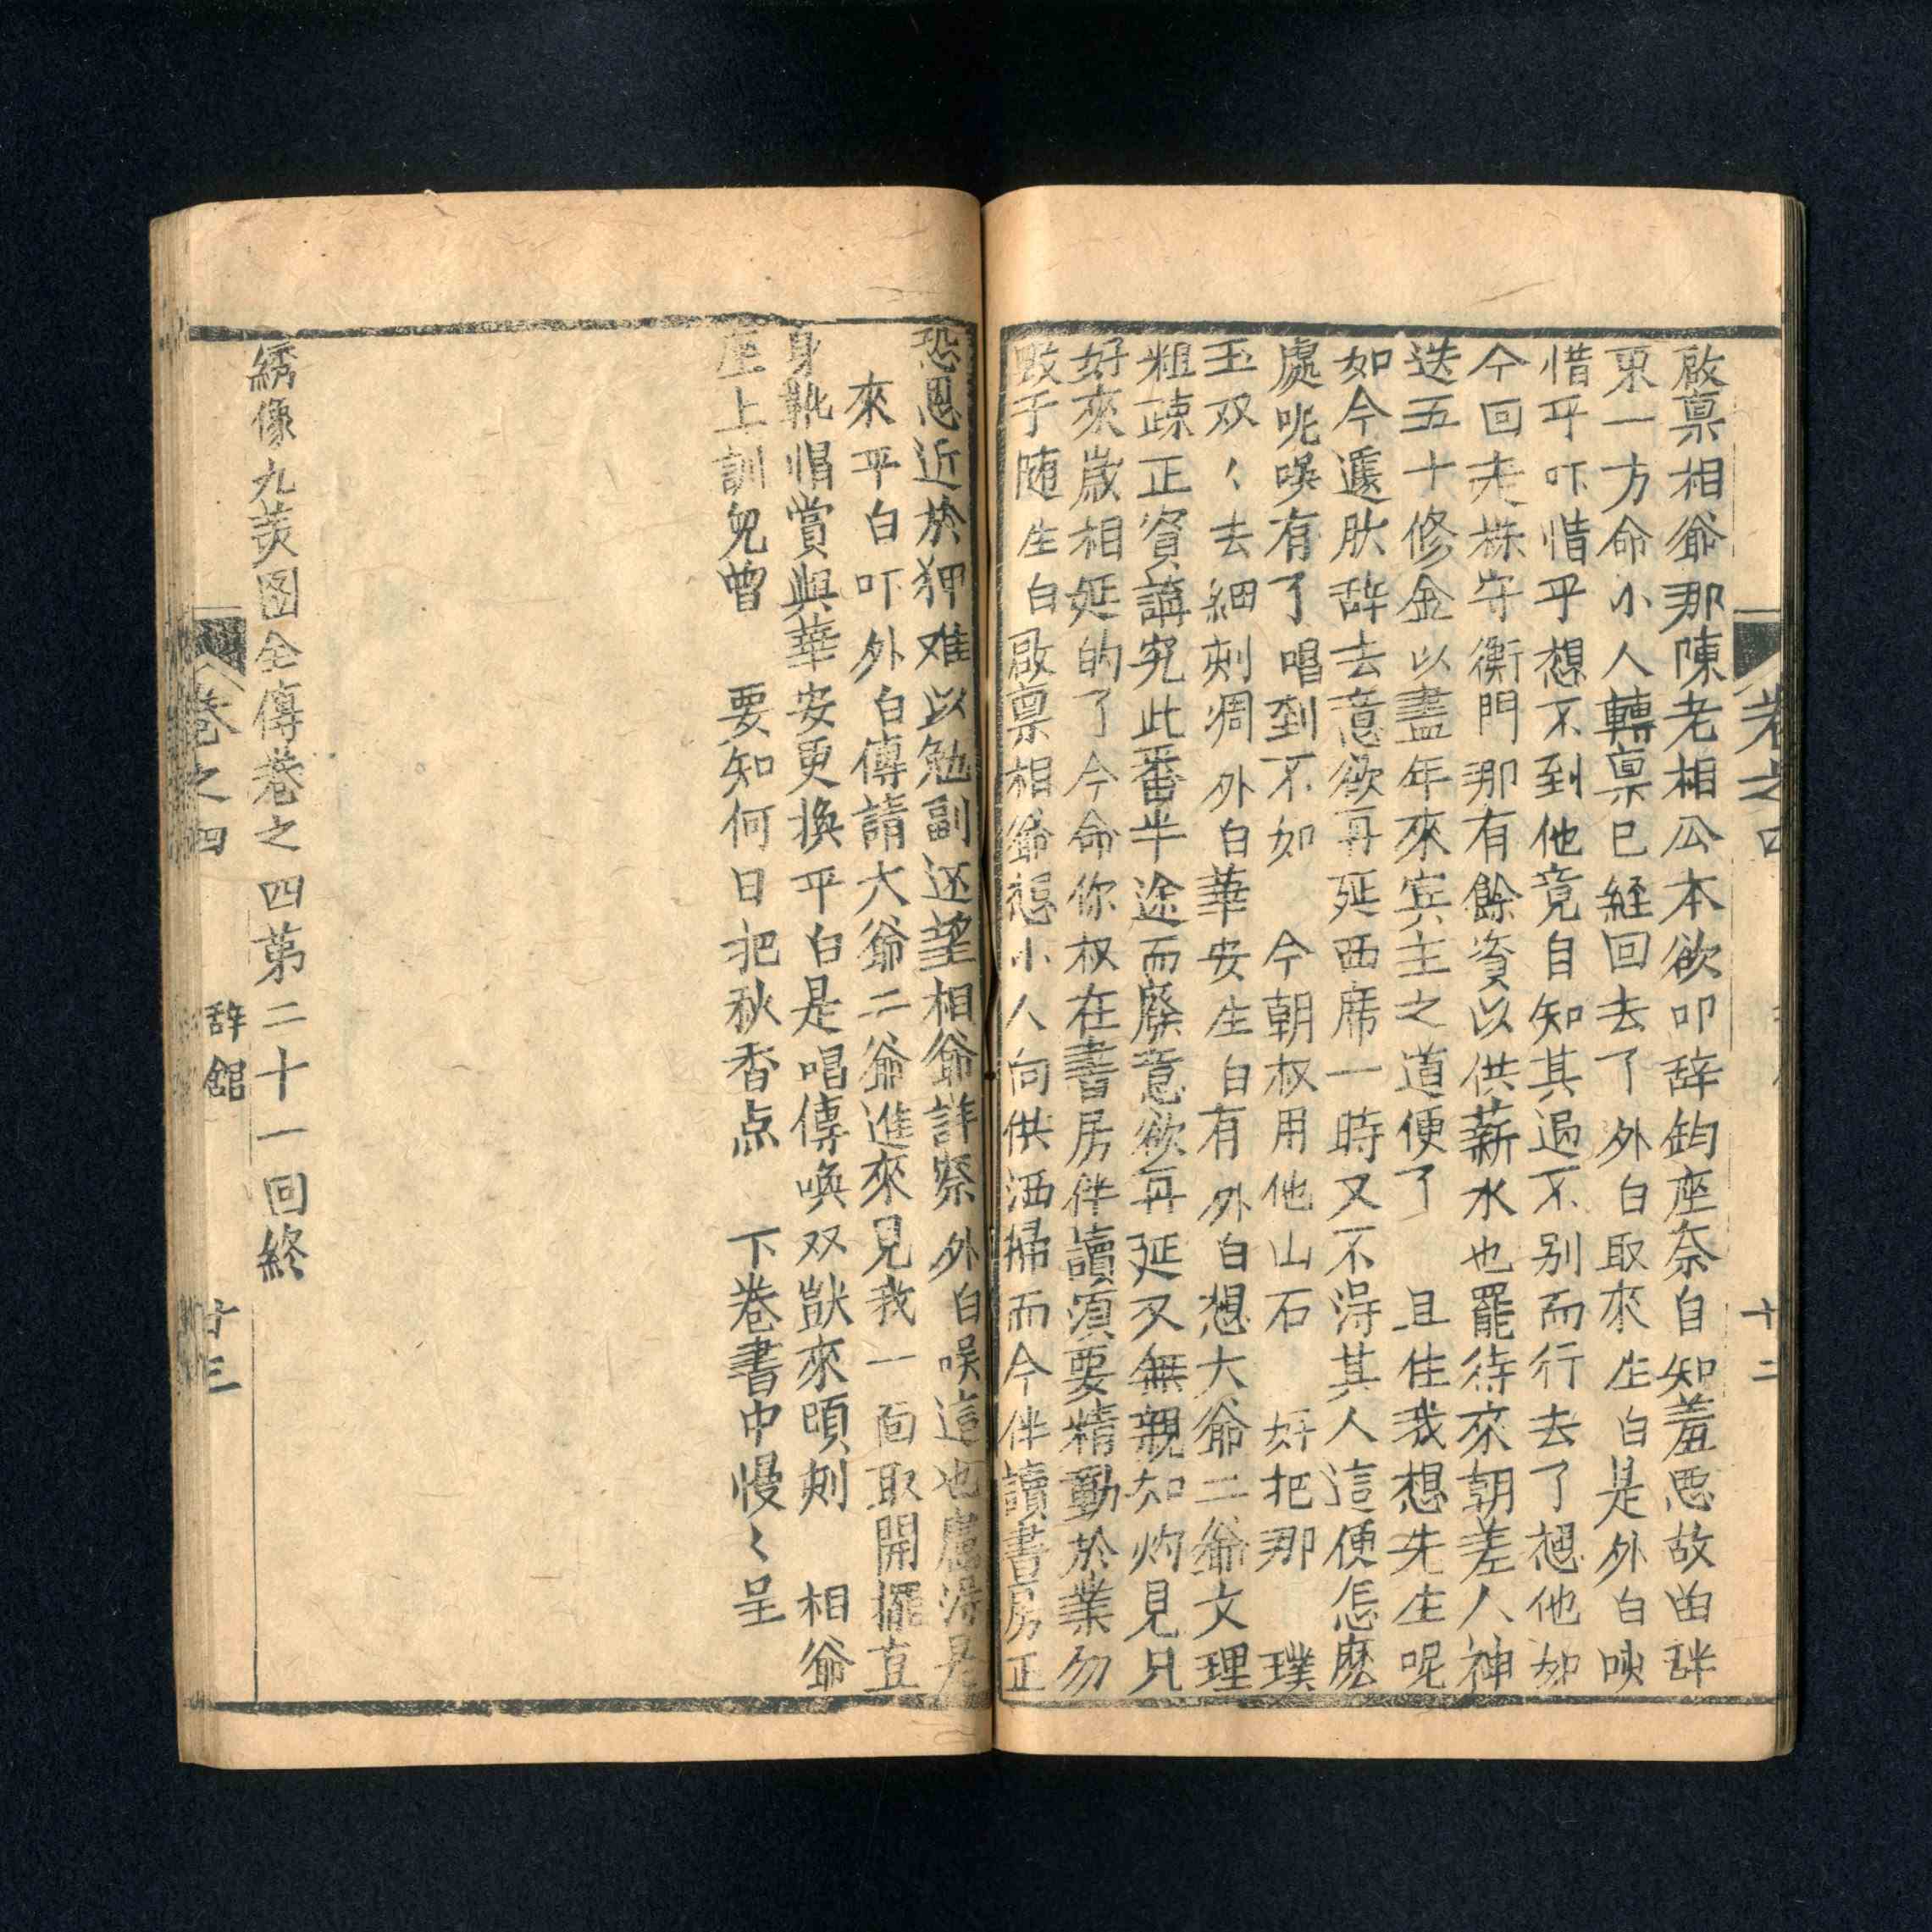 卷之四
十二
啟禀相爺那陳老相公本欲叩辞鈞座奈自知羞恶故由
東一方命小人轉禀已経回去了外白取來生白是外白
惜乎吓惜乎想不到他竟自知其過不别而行去了想他如
今回去株守衡門那有餘資以供薪水也罷待來朝差人神
送五十修金以盡年來宾主之道便了且住我想先生呢
如今遽肰辞去意欲再延西席一時又不淂其人這便怎麽
處呢唉有了唱到不如今朝权用他山石好把那璞
玉双〻去細刻凋外白華安生白有外白想大爺二爺文理
粗疎正賓講究此番半途而廢意欲再延又無親知灼見只
好來歲相延的了今命你权在書房伴讀須要精勤於業勿
于随生白啟禀相爺想小人向供洒掃而今伴讀書房正
恐恩近於狎难以勉副还望相爺詳察外白唉這也慮淂是
來平白吓外白傳請大爺二爺進來見我一面取開擺直
身靴帽賞與華安更換平白是唱傳喚双獃來頃刻相爺
座上訓兒曹要知何日把秋香点下卷書中慢〻呈
綉像九美图全傳卷之四第二十一回終
卷之四
辞館
廿三